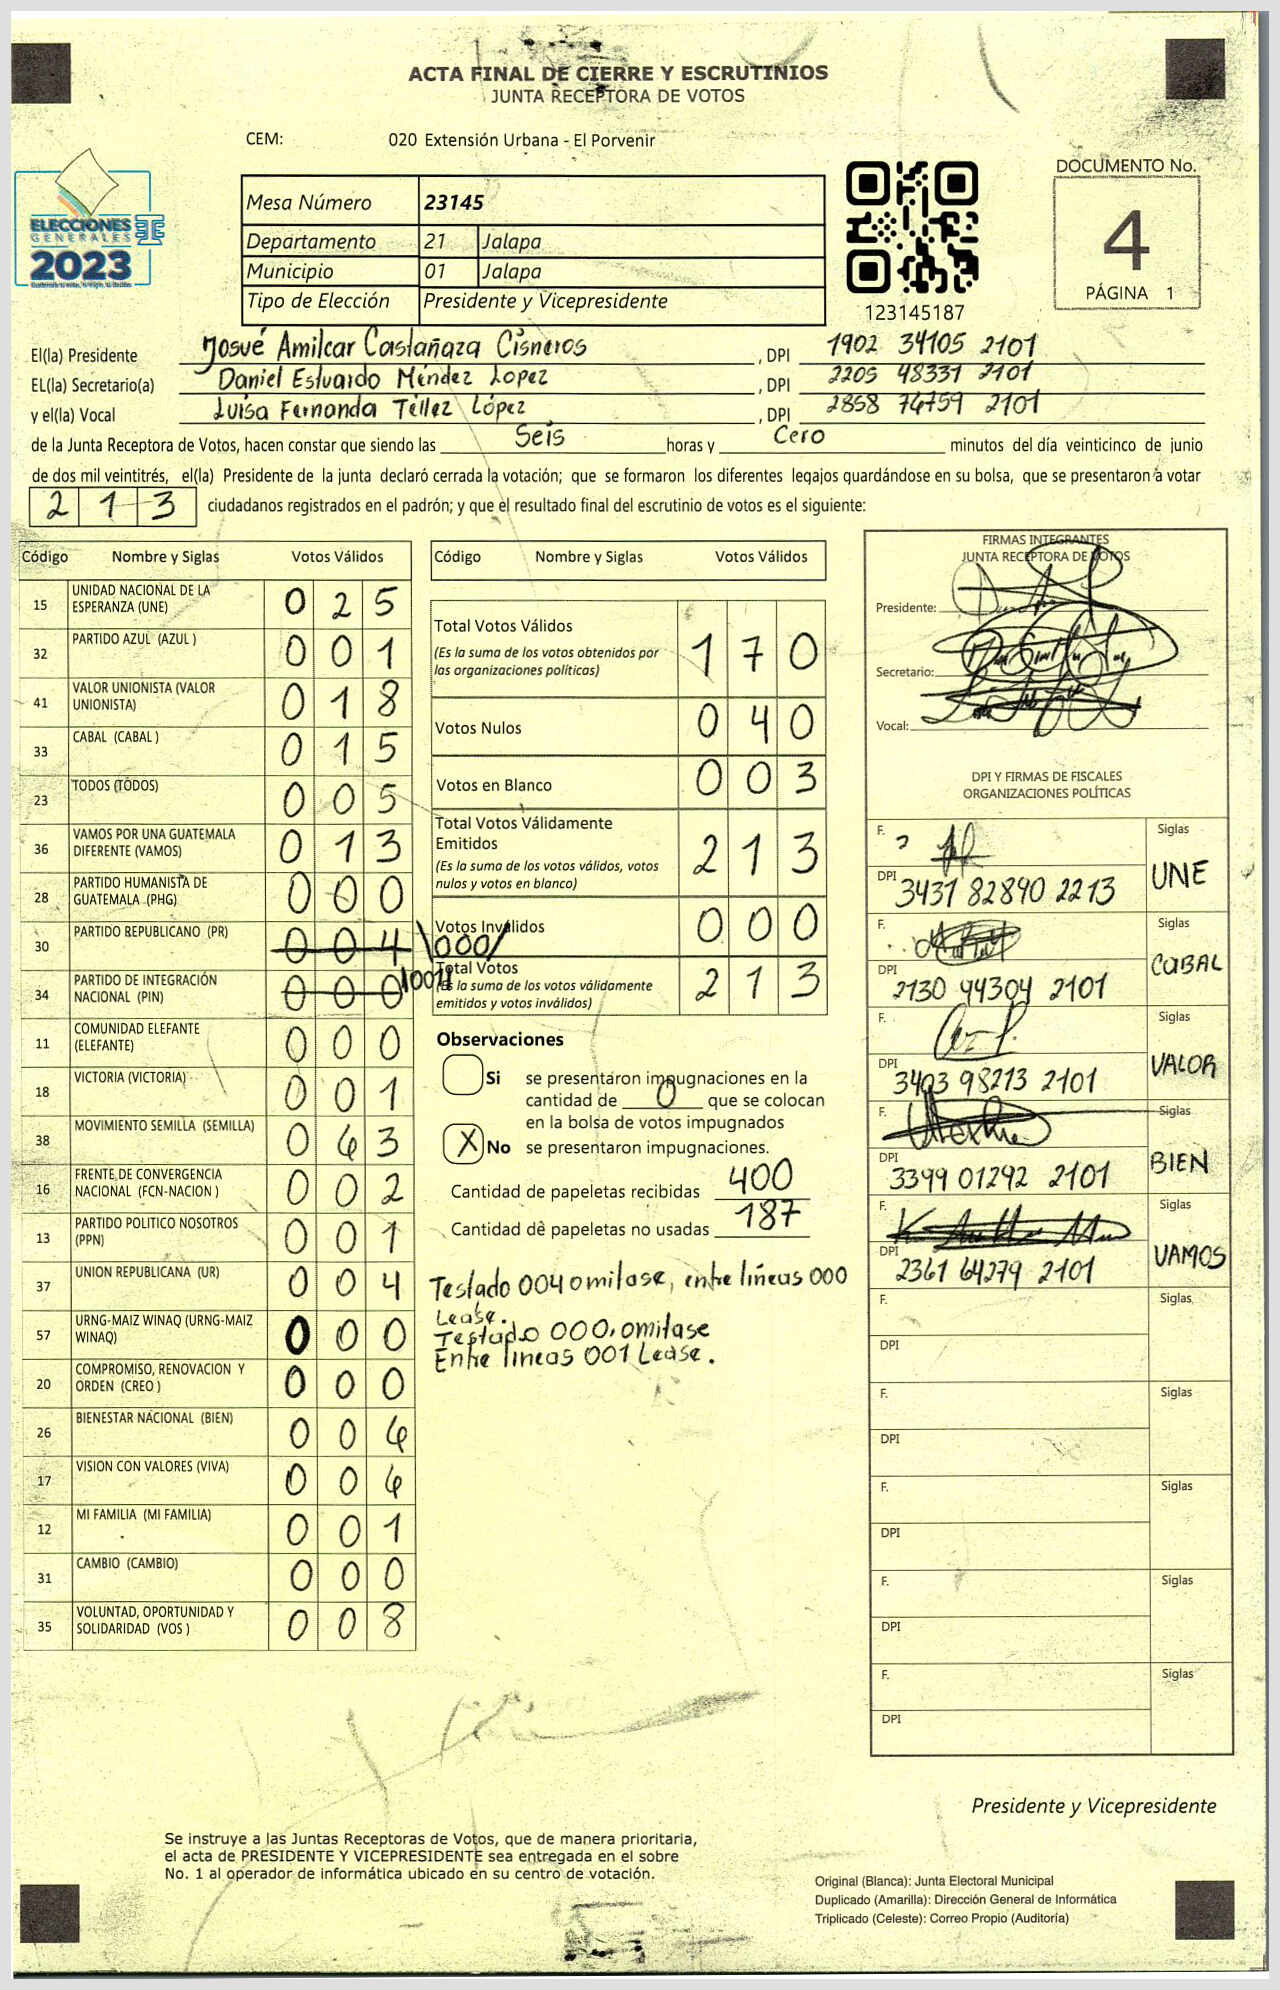 ACTA FINAL DE CIERRE Y ESCRUTINIOS
JUNTA RECEPTORA DE VOTOS
CEM: 020 Extensión Urbana - El Porvenir
ELECCIONES
GENERALES
2023
DOCUMENTO No.
4
PÁGINA 1
Mesa Número 23145
Departamento 21 Jalapa
Municipio 01 Jalapa
Tipo de Elección Presidente y Vicepresidente
123145187
El(la) Presidente Josué Amilcar Castañaza Cisneros , DPI 1902 34105 2101
EL(la) Secretario(a) Daniel Estuardo Méndez Lopez , DPI 2205 48331 2101
y el(la) Vocal Luisa Fernanda Téllez López , DPI 2858 74759 2101
de la Junta Receptora de Votos, hacen constar que siendo las Seis horas y Cero minutos del día veinticinco de junio
de dos mil veintitrés, el(la) Presidente de la junta declaró cerrada la votación; que se formaron los diferentes legajos guardándose en su bolsa, que se presentaron a votar
213 ciudadanos registrados en el padrón; y que el resultado final del escrutinio de votos es el siguiente:
Código Nombre y Siglas Votos Válidos
15 UNIDAD NACIONAL DE LA ESPERANZA (UNE) 0 2 5
32 PARTIDO AZUL (AZUL ) 0 0 1
41 VALOR UNIONISTA (VALOR UNIONISTA) 0 1 8
33 CABAL (CABAL ) 0 1 5
23 TODOS (TODOS) 0 0 5
36 VAMOS POR UNA GUATEMALA DIFERENTE (VAMOS) 0 1 3
28 PARTIDO HUMANISTA DE GUATEMALA (PHG) 0 0 0
30 PARTIDO REPUBLICANO (PR) 0 0 4 \000/
34 PARTIDO DE INTEGRACIÓN NACIONAL (PIN) 0 0 0
11 COMUNIDAD ELEFANTE (ELEFANTE) 0 0 0
18 VICTORIA (VICTORIA) 0 0 1
38 MOVIMIENTO SEMILLA (SEMILLA) 0 6 3
16 FRENTE DE CONVERGENCIA NACIONAL (FCN-NACION ) 0 0 2
13 PARTIDO POLITICO NOSOTROS (PPN) 0 0 1
37 UNION REPUBLICANA (UR) 0 0 4
57 URNG-MAIZ WINAQ (URNG-MAIZ WINAQ) 0 0 0
20 COMPROMISO, RENOVACION Y ORDEN (CREO ) 0 0 0
26 BIENESTAR NACIONAL (BIEN) 0 0 4
17 VISION CON VALORES (VIVA) 0 0 4
12 MI FAMILIA (MI FAMILIA) 0 0 1
31 CAMBIO (CAMBIO) 0 0 0
35 VOLUNTAD, OPORTUNIDAD Y SOLIDARIDAD (VOS ) 0 0 8
Código Nombre y Siglas Votos Válidos
Total Votos Válidos 1 7 0
(Es la suma de los votos obtenidos por
las organizaciones políticas)
Votos Nulos 0 4 0
Votos en Blanco 0 0 3
Total Votos Válidamente
Emitidos 2 1 3
(Es la suma de los votos válidos, votos
nulos y votos en blanco)
Votos Inválidos 0 0 0
Total Votos 2 1 3
(Es la suma de los votos válidamente
emitidos y votos inválidos)
Observaciones
Si se presentaron impugnaciones en la
cantidad de 0 que se colocan
en la bolsa de votos impugnados
X No se presentaron impugnaciones.
Cantidad de papeletas recibidas 400
Cantidad de papeletas no usadas 187
Testado 004 omitase, entre líneas 000
Lease.
Testado 000, omitase
Entre líneas 001 Lease.
FIRMAS INTEGRANTES
JUNTA RECEPTORA DE VOTOS
Presidente:
Secretario:
Vocal:
DPI Y FIRMAS DE FISCALES
ORGANIZACIONES POLÍTICAS
F. Siglas
DPI 3431 82890 2213 UNE
F. Siglas
DPI 2130 94304 2101 CABAL
F. Siglas
DPI 3403 98213 2101 VALOR
F. Siglas
DPI 3399 01292 2101 BIEN
F. Siglas
DPI 2361 64279 2101 VAMOS
F. Siglas
DPI
F. Siglas
DPI
F. Siglas
DPI
F. Siglas
DPI
F. Siglas
DPI
Presidente y Vicepresidente
Se instruye a las Juntas Receptoras de Votos, que de manera prioritaria,
el acta de PRESIDENTE Y VICEPRESIDENTE sea entregada en el sobre
No. 1 al operador de informática ubicado en su centro de votación.
Original (Blanca): Junta Electoral Municipal
Duplicado (Amarilla): Dirección General de Informática
Triplicado (Celeste): Correo Propio (Auditoría)